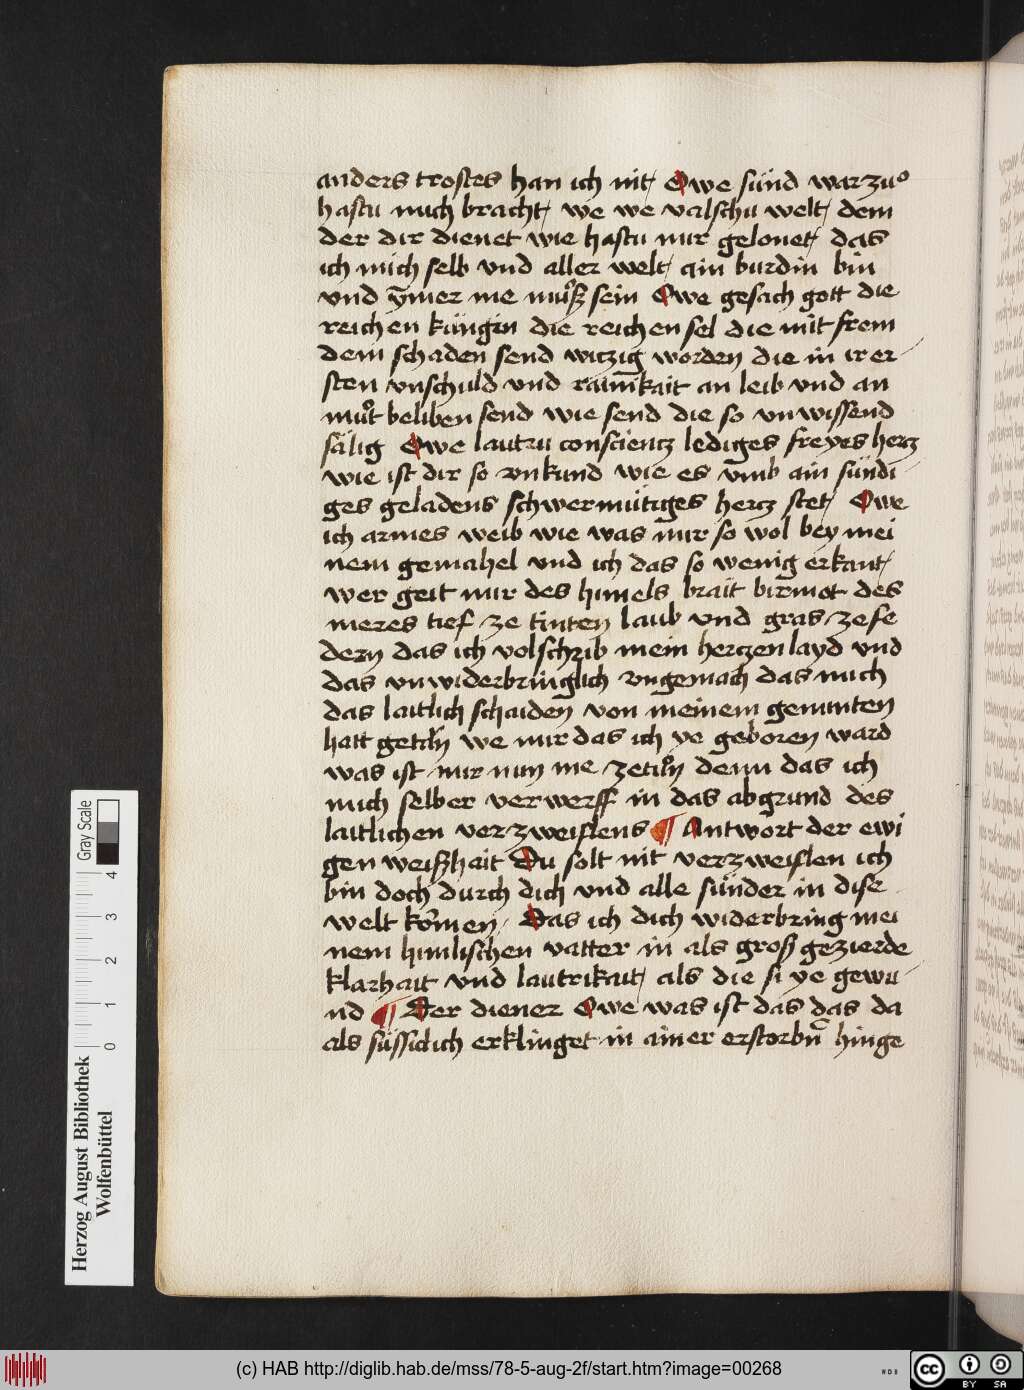 anders trostes han ich nit/ Owe sünd warzuͦ
hastu mich bracht/ we we valschu welt/ dem
der dir dienet wie hastu mir gelonet/ das
ich mich selb vnd aller welt/ ain burdin bin
vnd ÿmer me muͦß sein Owe gesach gott die
reichen küngin die reichen sel die mit frem
dem schaden send witzig worden die in ir er-
sten vnschuld vnd rainikait an leib vnd an
muͦt beliben send wie send die so vnwissend
sälig Owe lautru conscientz lediges freyes hertz
wie ist dir so vnkund wie es vmb ain sündi-
ges geladens schwermütiges hertz stet/ Owe
ich armes weib wie was mir so wol bey mei
nem gemahel vnd ich das so wenig erkant/
wer geit mir des himels brait birmot des
meres tief ze tinten laub vnd gras zefe
dern das ich volschrib mein hertzenlayd vnd
das vnwiderbringlich vngemach das mich
das laitlich schaiden von meinem geminten
hatt getān we mir das ich ye geboren ward
was ist mir nun me zetūn denn das ich
mich selber verwerff in das abgrund des
laitlichen verzweiflens ¶ Antwort der ewi
gen weißhait Du solt nit verzweiflen ich
bin doch durch dich vnd alle sünder in dise
welt komen/ Das ich dich widerbring mei
nem himlischen vatter in als groß gezierde
klarhait vnd lautrikait/ als die si ye gewu-
nd ¶ Der diener Owe was ist das das da
als süssiclich erklinget in ainer erstorbn̄ hinge
Herzog August Bibliothek
Wolfenbüttel
0 1 2 3 4
Gray Scale
(c) HAB http://diglib.hab.de/mss/78-5-aug-2f/start.htm?image=00268
cc BY SA